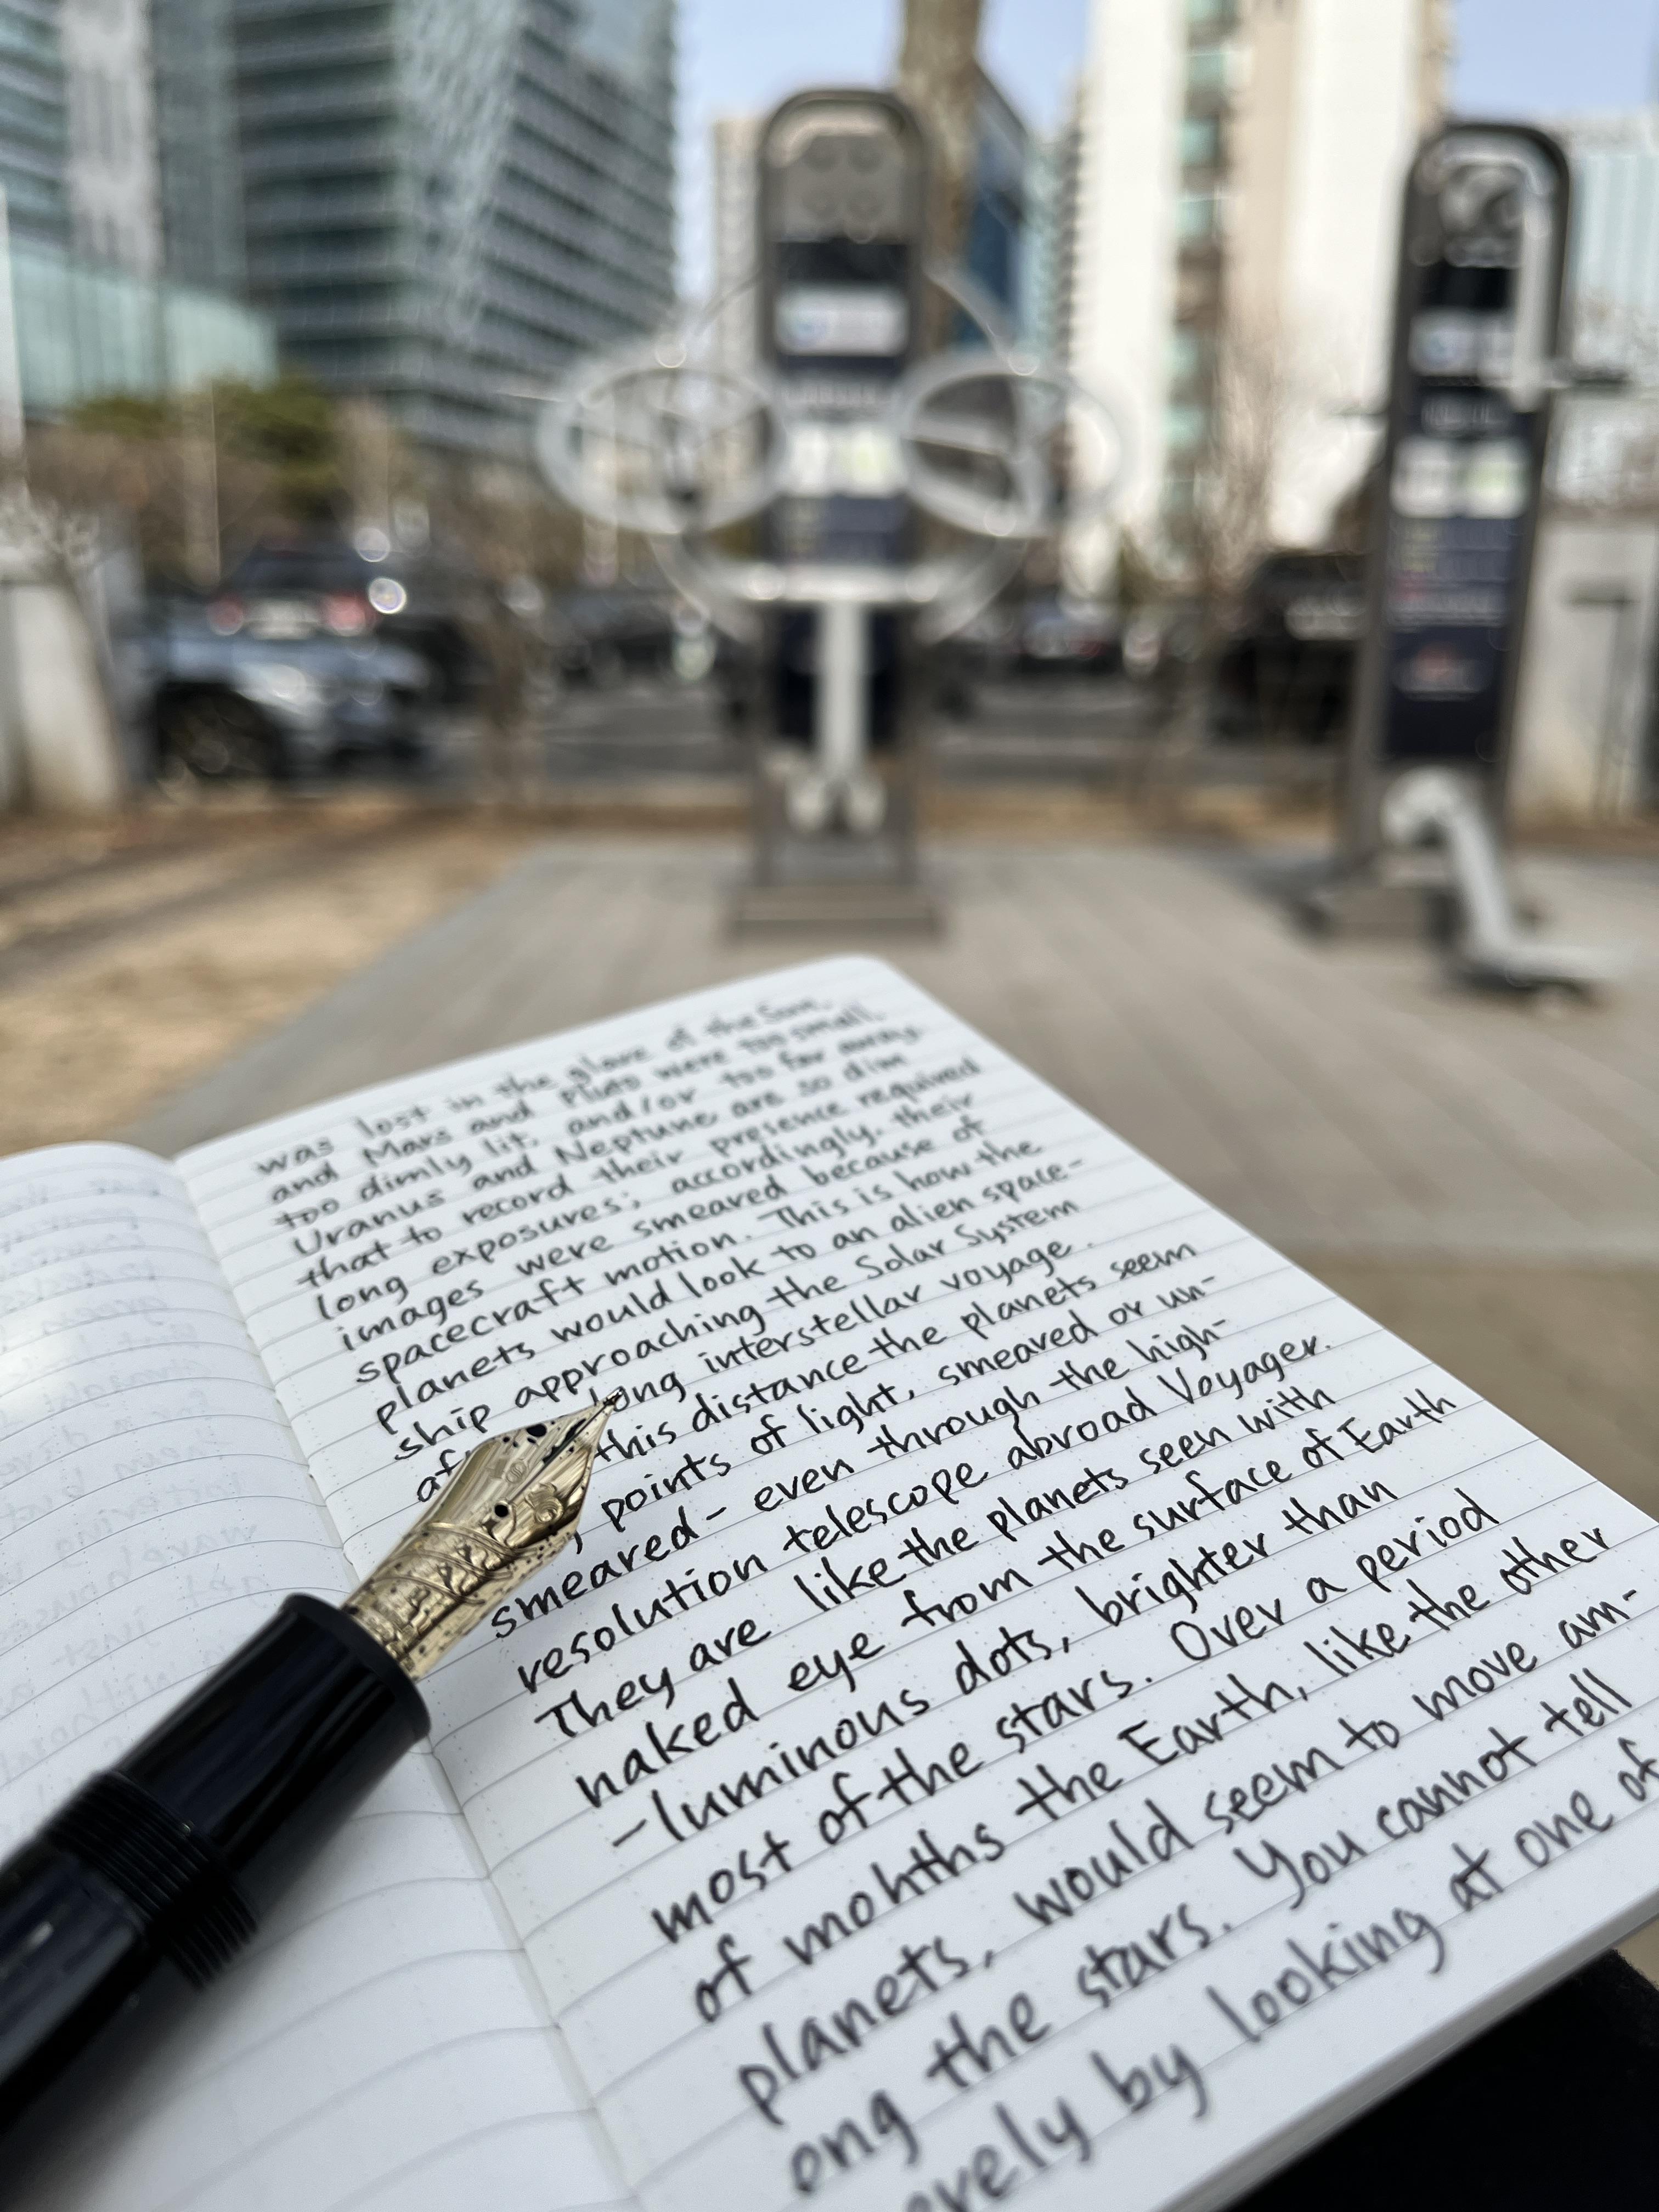 was lost in the glare of the Sun,
and Mars and Pluto were too small,
too dimly lit, and/or too far away.
Uranus and Neptune are so dim
that to record their presence required
long exposures; accordingly. their
images were smeared because of
spacecraft motion. This is how the
planets would look to an alien space-
ship approaching the Solar System
long interstellar voyage.
this distance the planets seem
points of light, smeared or un-
smeared - even through the high-
resolution telescope abroad Voyager.
They are like the planets seen with
naked eye from the surface of Earth
- luminous dots, brighter than
most of the stars. Over a period
of mohths the Earth, like the other
planets, would seem to move am-
ong the stars. You cannot tell
by looking at one of